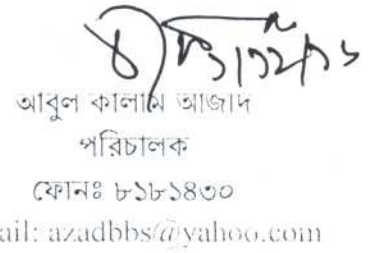 আবুল কালাম আজাদ
পরিচালক
ফোনঃ ৮১৮১৪৩০
ail: azadbbs@yahoo.com